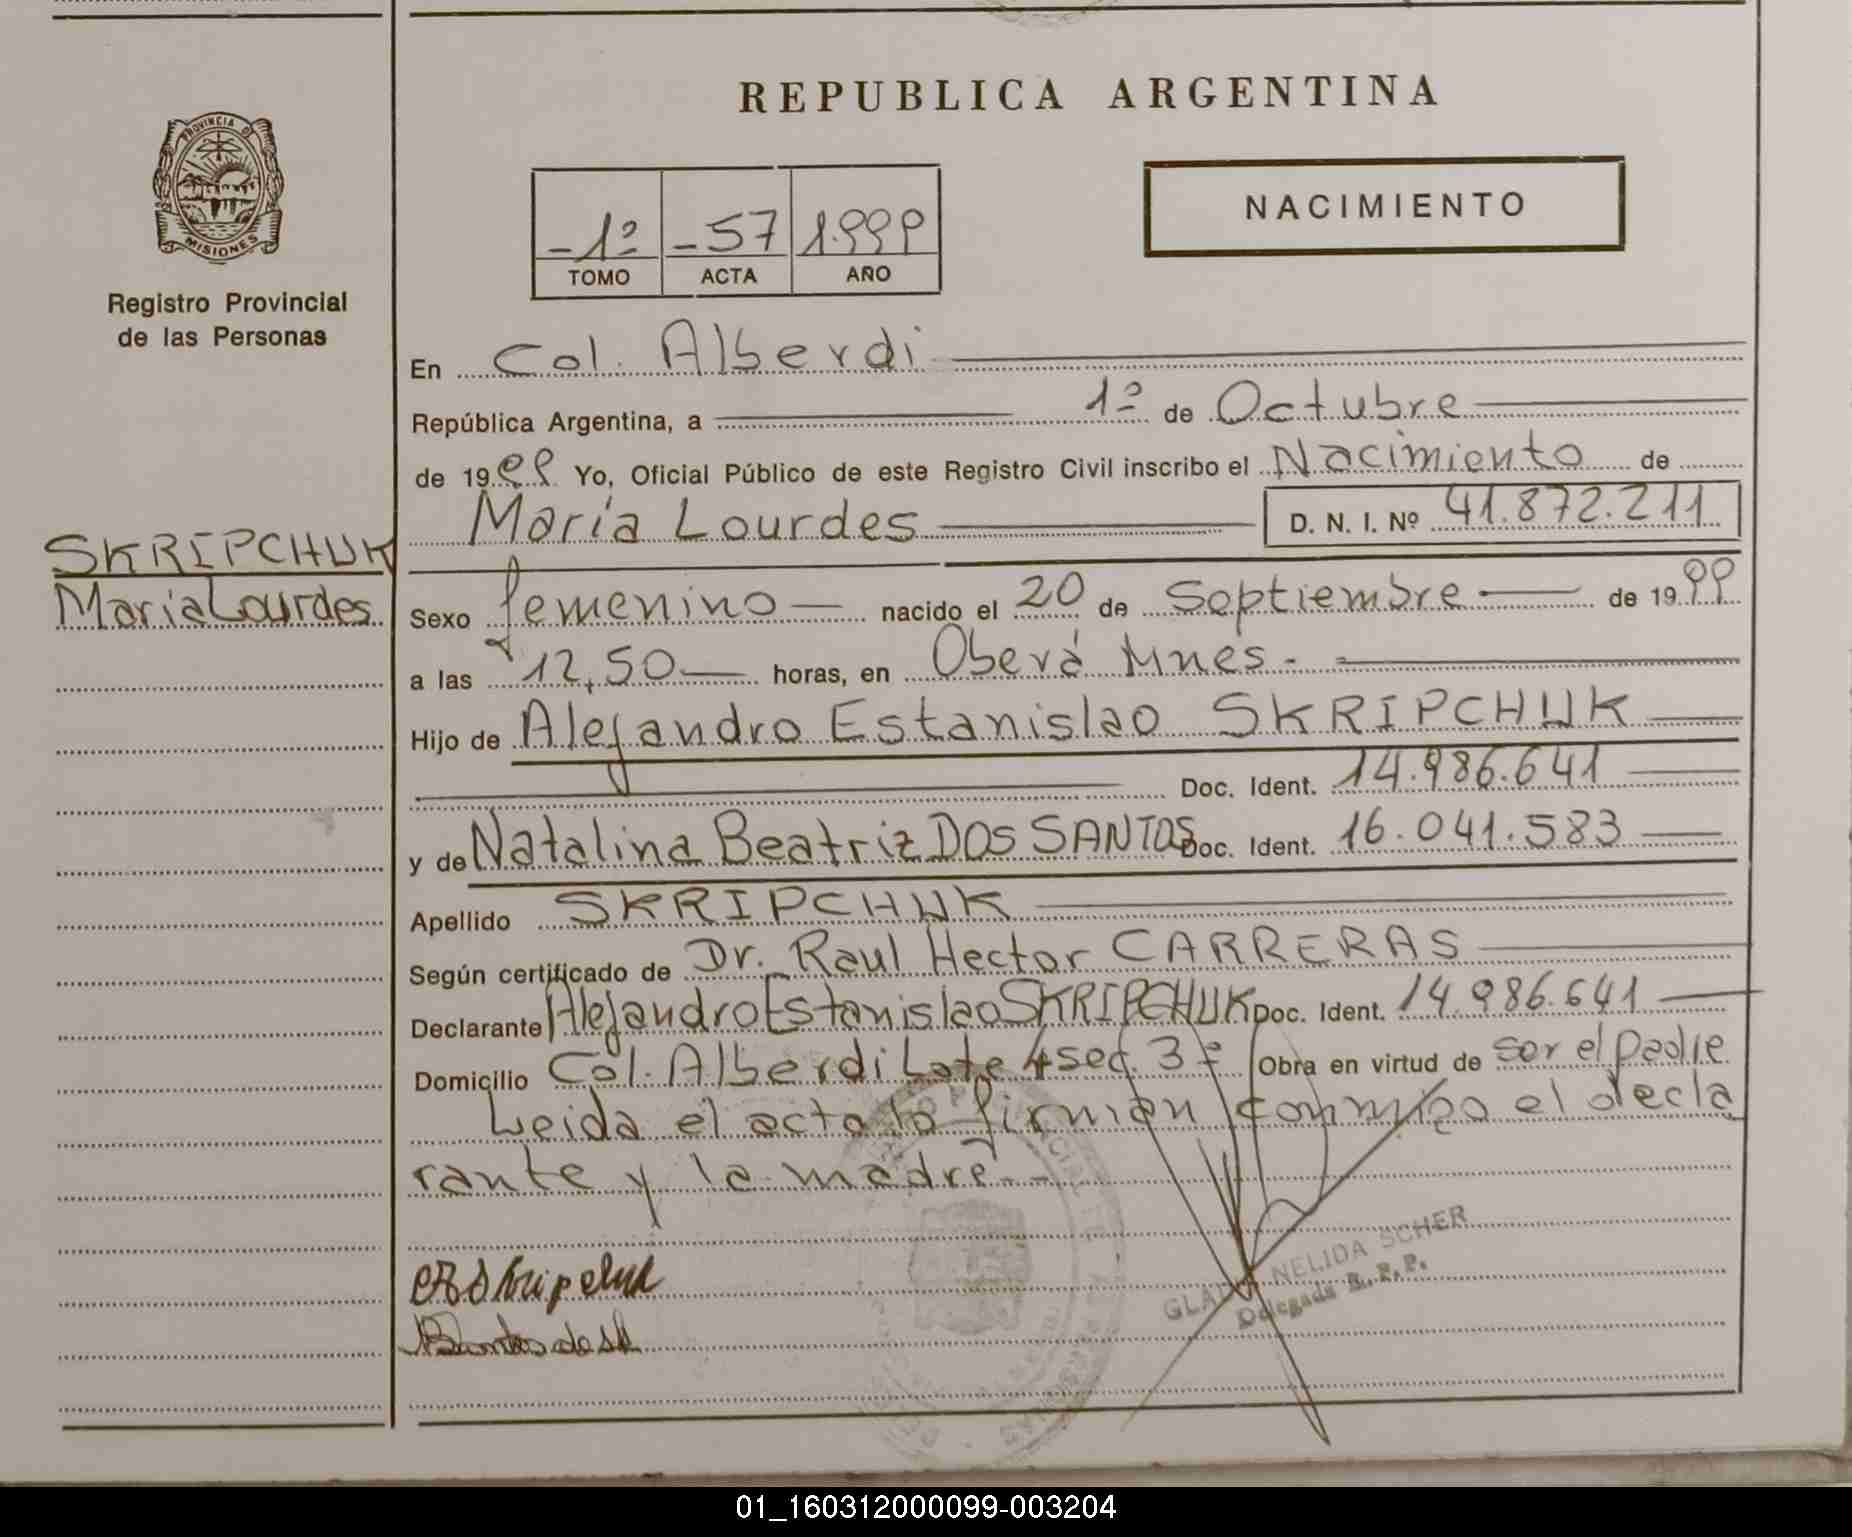 REPUBLICA ARGENTINA
PROVINCIA DE
MISIONES
Registro Provincial
de las Personas
NACIMIENTO
-1º -57 1.999
TOMO ACTA AÑO
En Col. Alberdi
República Argentina, a 1º de Octubre
de 1999 Yo, Oficial Público de este Registro Civil inscribo el Nacimiento de
María Lourdes D. N. I. Nº 41.872.211
SKRIPCHUK
María Lourdes
Sexo femenino nacido el 20 de Septiembre de 1999
a las 12,50 horas, en Oberá Mnes.
Hijo de Alejandro Estanislao SKRIPCHUK
Doc. Ident. 14.986.641
y de Natalina Beatriz DOS SANTOS Doc. Ident. 16.041.583
Apellido SKRIPCHUK
Según certificado de Dr. Raul Hector CARRERAS
Declarante Alejandro Estanislao SKRIPCHUK Doc. Ident. 14.986.641
Domicilio Col. Alberdi Lote 4 sec. 3º Obra en virtud de ser el padre
Leida el acta la firman conmigo el decla
rante y la madre.-
NELIDA SCHER
Delegada R. P. P.
01_160312000099-003204